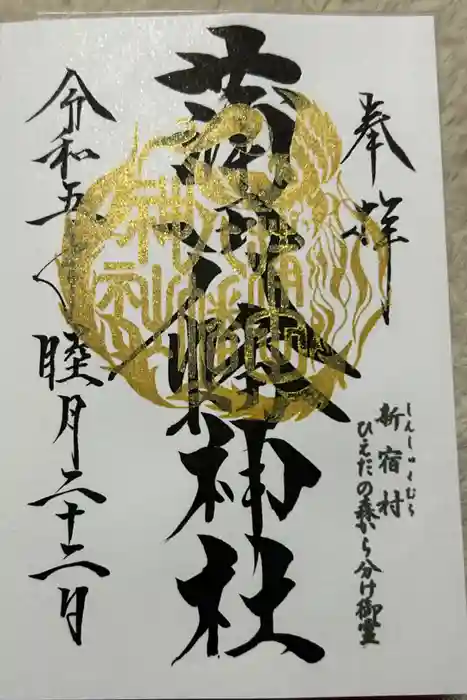 奉拝
新宿村
しんしゅくむら
ひえだの森から分け御霊
蒲田八幡神社
令和五年睦月二十二日